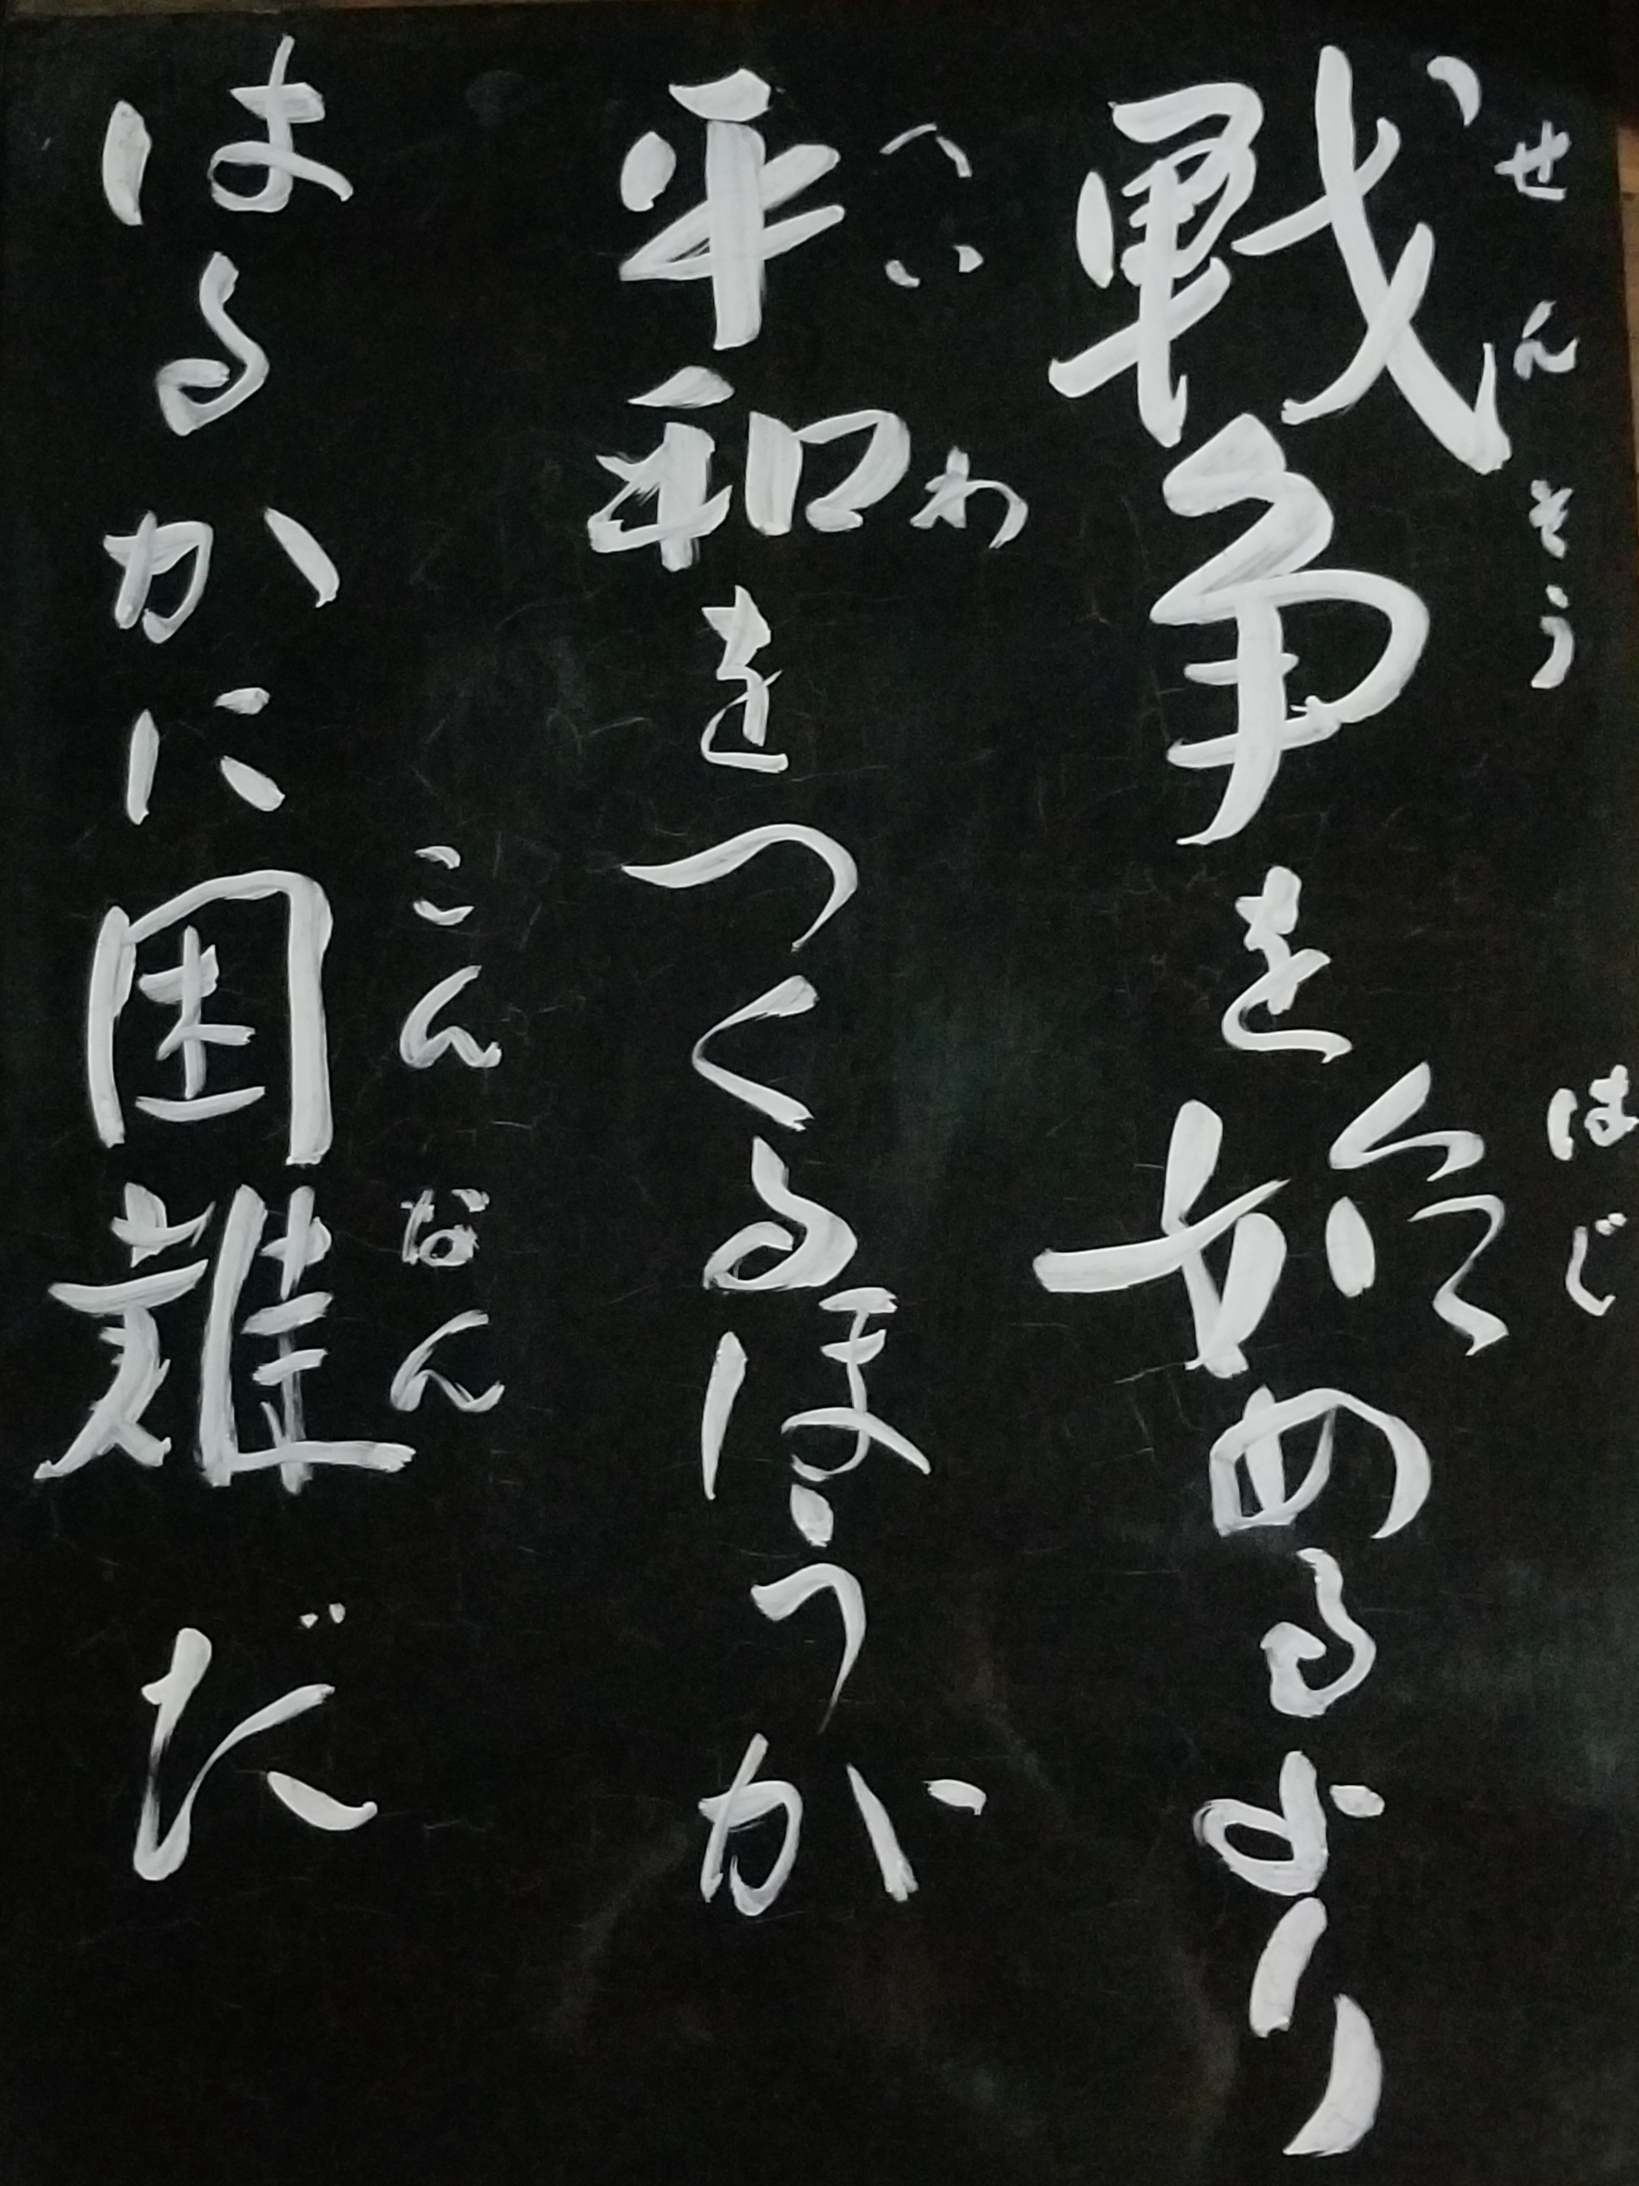 せんそう はじ
戦争を始めるより
へいわ
平和をつくるほうが
こんなん
はるかに困難だ